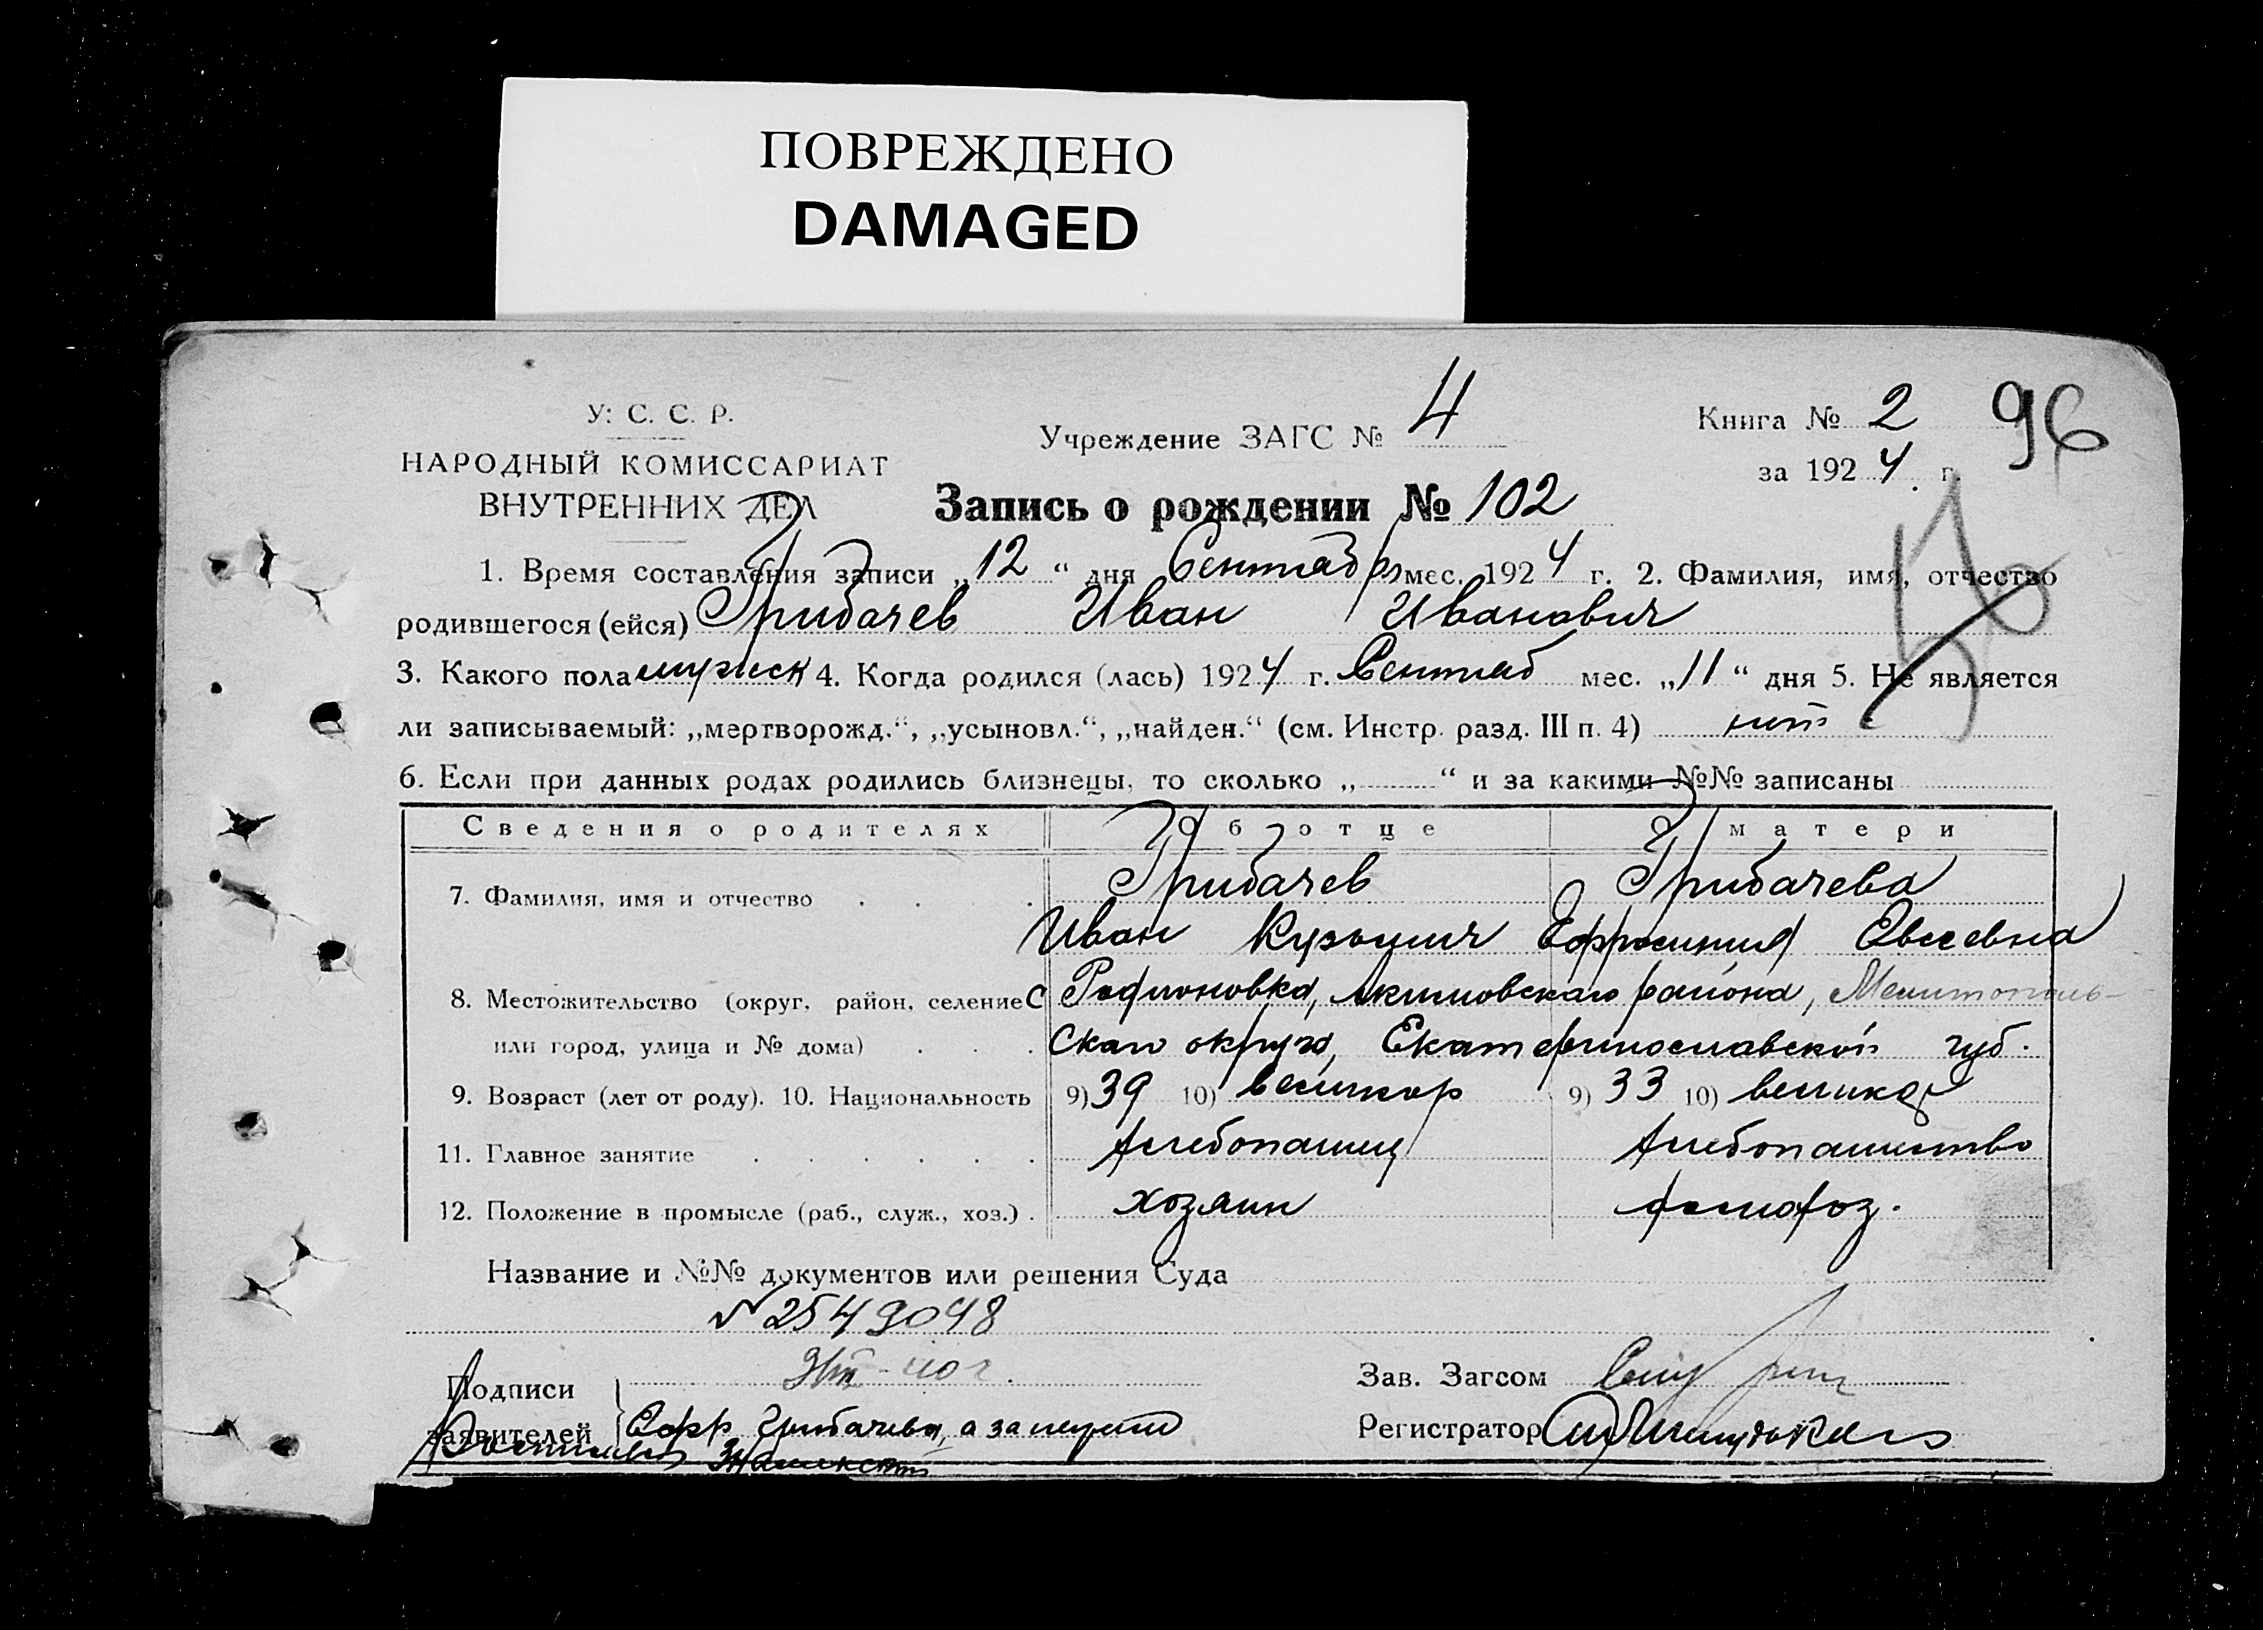 ПОВРЕЖДЕНО
DAMAGED
У. С. С. Р.
НАРОДНЫЙ КОМИССАРИАТ
ВНУТРЕННИХ ДЕЛ
Учреждение ЗАГС № 4
Книга № 2
96
за 1924 г.
Запись о рождении № 102
1. Время составления записи „12“ дня Сентябр мес. 1924 г. 2. Фамилия, имя, отчество
родившегося (ейся) Грибачев Иван Иванович
3. Какого пола мужск 4. Когда родился (лась) 1924 г. Сентяб мес. „11“ дня 5. Не является
ли записываемый: „мертворожд.“, „усыновл.“, „найден.“ (см. Инстр. разд. III п. 4) нет
6. Если при данных родах родились близнецы, то сколько „ “ и за какими №№ записаны
Сведения о родителях Об отце О матери
7. Фамилия, имя и отчество Грибачев Грибачева
Иван Кузьмич Ефросиния Евсеевна
8. Местожительство (округ, район, селение с Родионовка, Акимовскаго района, Мелитополь-
или город, улица и № дома) скаго округа, Екатеринославской губ.
9. Возраст (лет от роду). 10. Национальность 9) 39 10) великор 9) 33 10) великор
11. Главное занятие хлебопашец хлебопашество
12. Положение в промысле (раб., служ., хоз.) хозяин домохоз.
Название и №№ документов или решения Суда
№ 2549048
Подписи
заявителей Ефр. Грибачева, а за неграм
Зав. Загсом
Регистратор